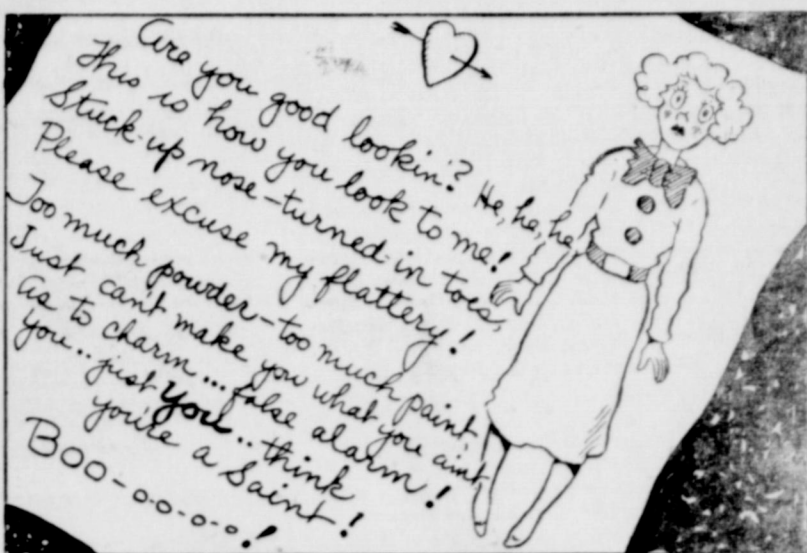 Are you good lookin'? He, he, he
This is how you look to me!
Stuck-up nose-turned-in toes,
Please excuse my flattery!
Too much powder-too much paint
Just can't make you what you aint
as to charm... false alarm!
you.. just you.. think
you're a Saint!
Boo-o-o-o-o!